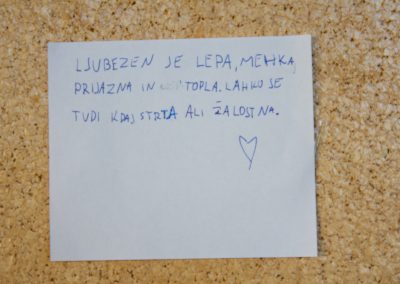 LJUBEZEN JE LEPA, MEHKA,
PRIJAZNA IN TOPLA. LAHKO JE
TUDI KDAJ STRTA ALI ŽALOSTNA.